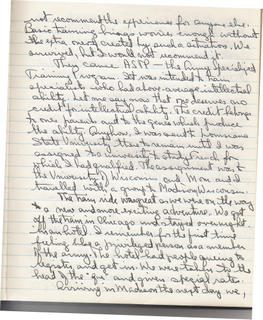 not recommend the experience for anyone else.
Basic training brings worries enough without
the extra ones created by such a situation. We
survived, but would not recommend it.
They came ASTP — the Army Specialized
Training Program. It was intended to train
specialists who had above-average intellectual
ability. Let me say now that one deserves no
credit for intellectual ability. The credit belongs
to one's parents and the genes which produce
the ability. Anyhow, I was sent to Louisiana
State University there to remain until I was
assigned to a university to study French for
which I had qualified. The assignment was to
the University of Wisconsin and Mom and I
travelled with a group to Madison, Wisconsin.
The train ride was great as we were on the way
to a new and more exciting adventure. We got
off the train in Chicago and stayed overnight
at an hotel. I remember for the first time
feeling like a privileged person as a member
of the army. The hotel had people queuing to
register and get in. We were taken to the
head of the "q" and given special rates.
Arriving in Madison the next day we,